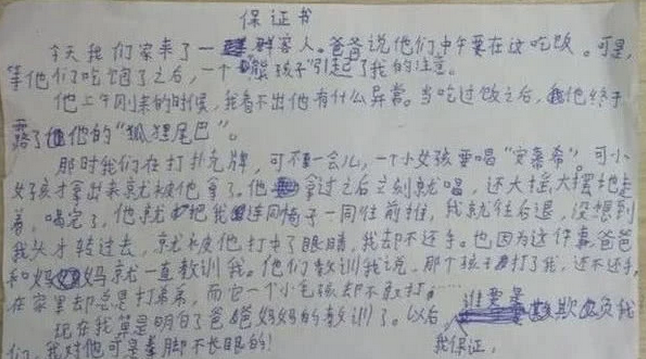 保证书
今天我们家来了一群客人。爸爸说他们中午要在这吃饭。可是,
等他们吃饱了之后，一个"熊孩子"引起了我的注意。
他上午刚来的时候，我看不出他有什么异常。当吃过饭之后，他终于
露了他的"狐狸尾巴"。
那时我们在打扑克牌，可不一会儿，一个小女孩要喝"安慕希"。可小
女孩才拿出来就被他拿了。他拿过之后立刻就喝，还大摇大摆地走
着，喝完了，他就把我连同椅子一同往前推，我就往后退，没想到
我头才转过去，就被他打中了眼睛，我却不还手。也因为这件事，爸爸
和妈妈就一直教训我。他们教训我说，那个孩子打了我，还不还手，
在家里却总是打弟弟，而它一个小毛孩却不敢打。
现在我算是明白了爸爸妈妈的教训了。以后，谁要是欺负我
们，我对他可是拳脚不长眼的！
我保证。